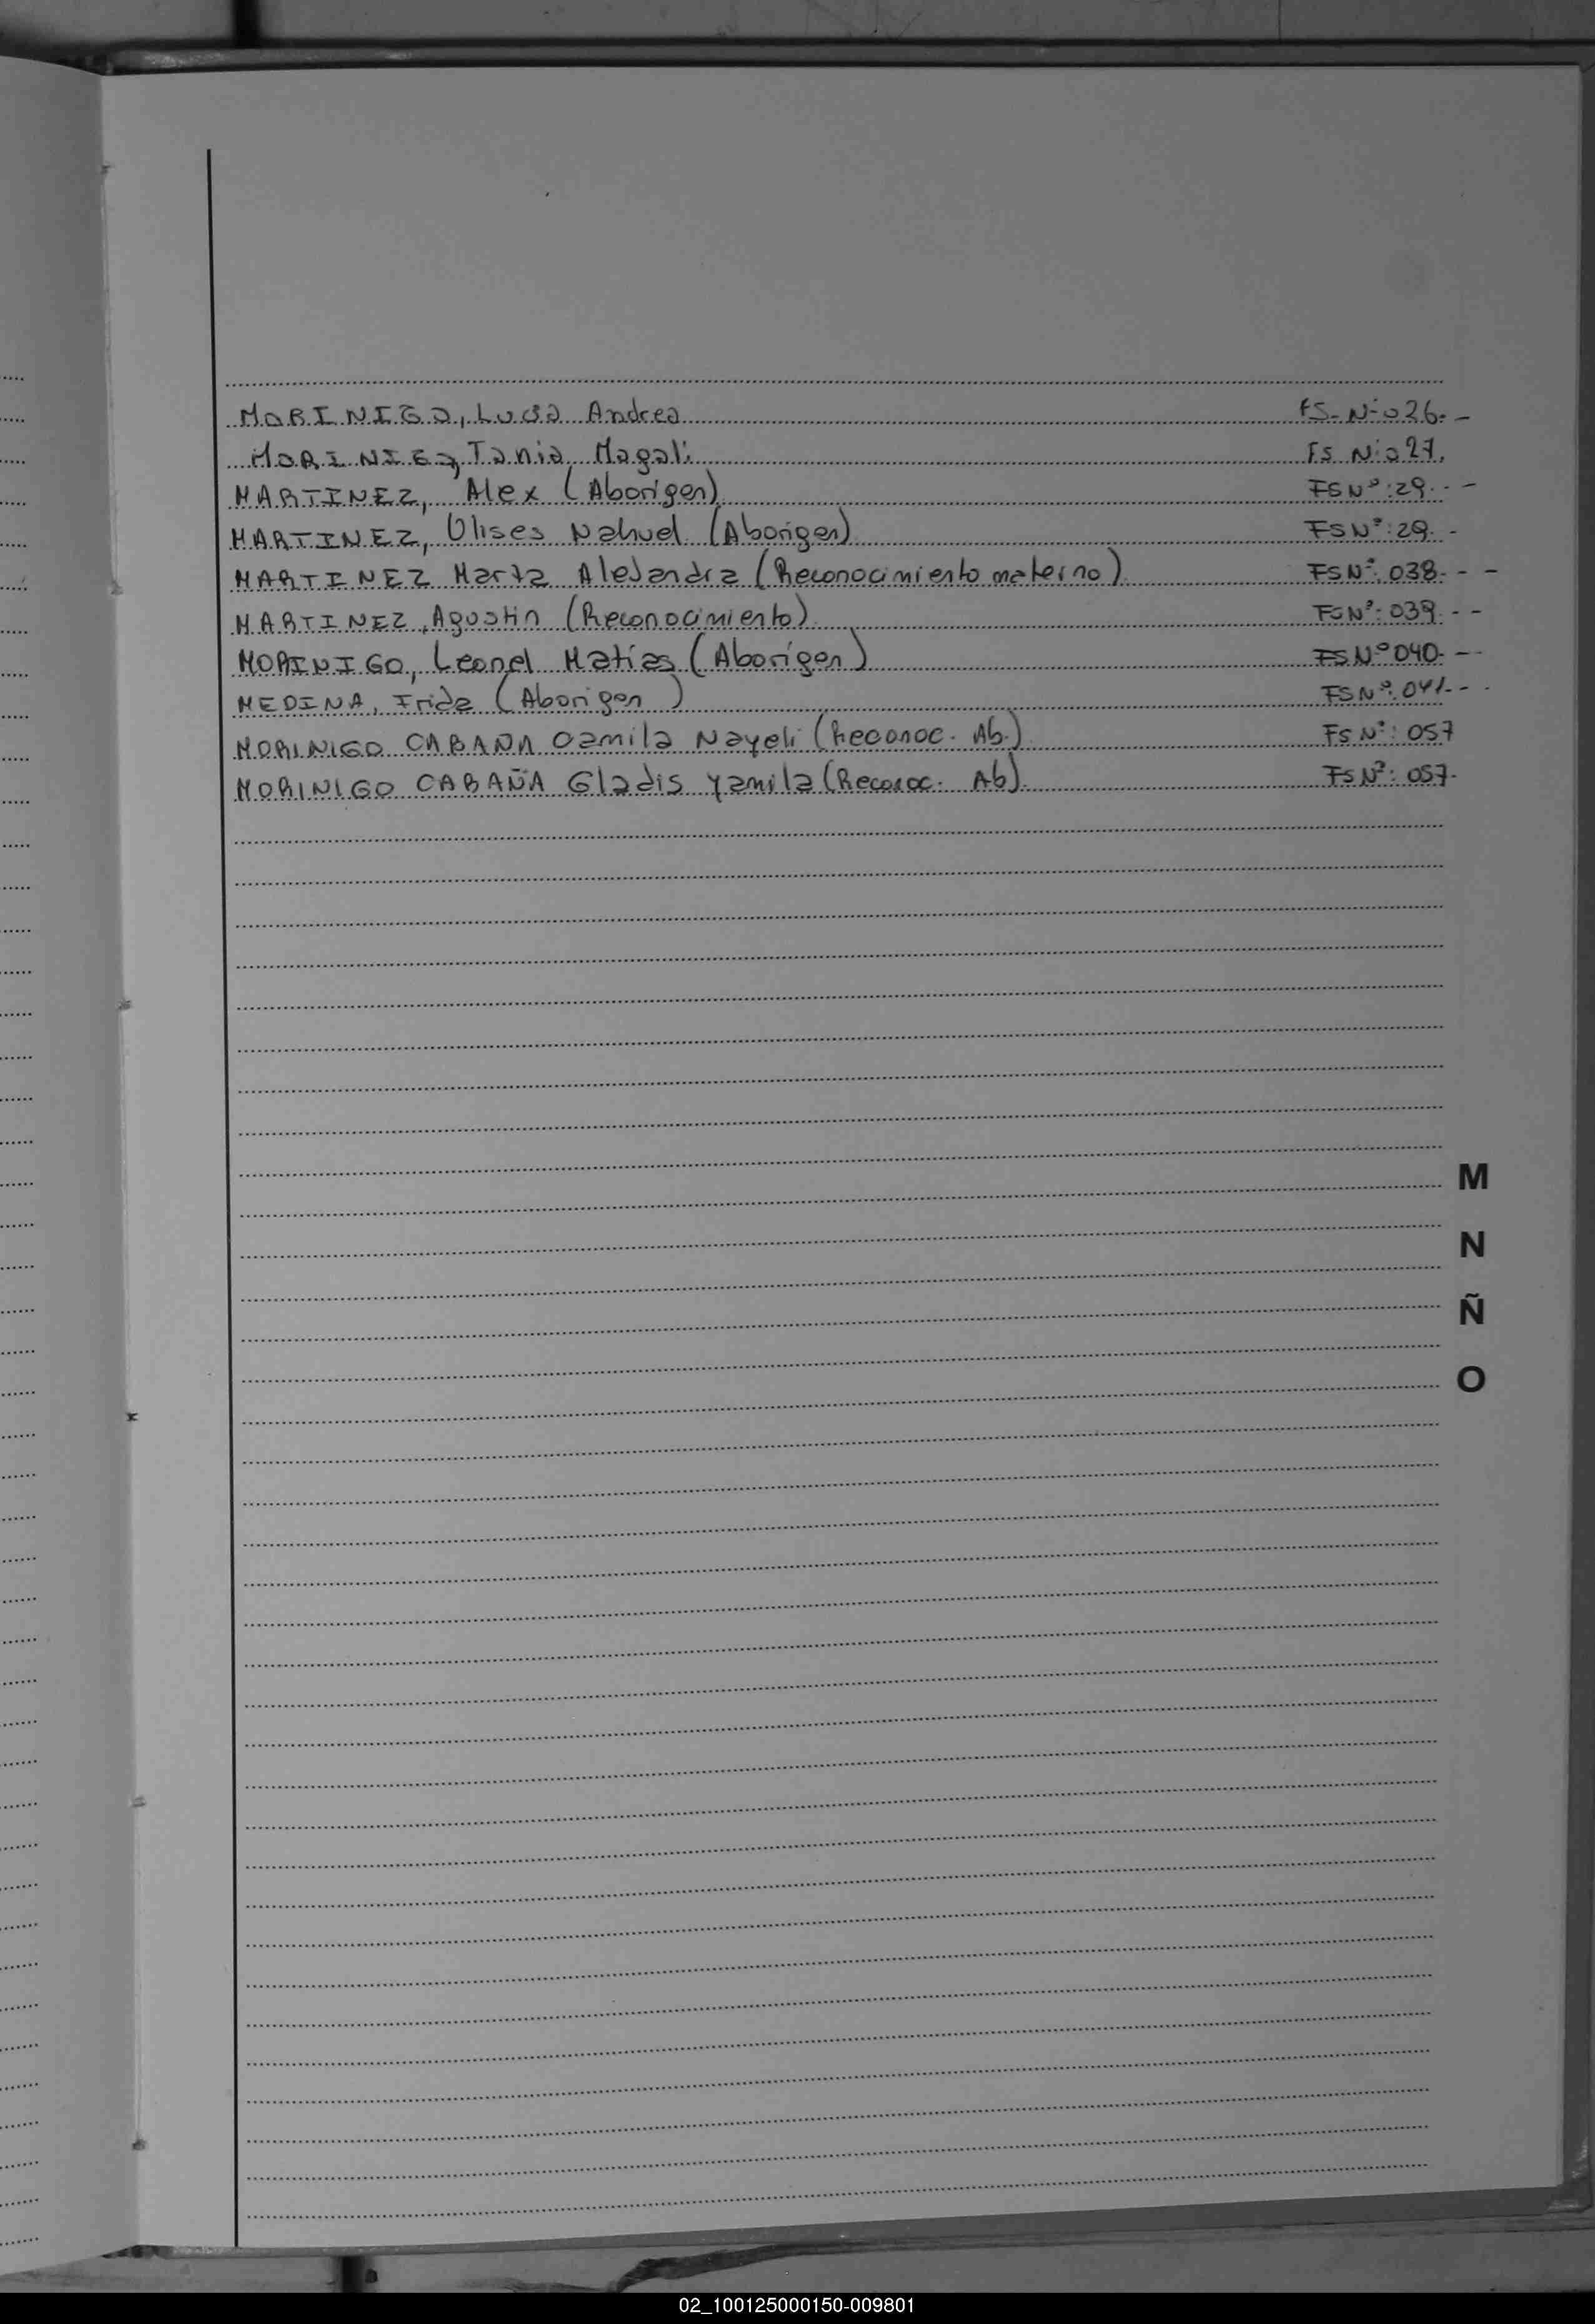 MORINIGO, Lucia Andrea FS-Nº026.-
MORINIGO, Tania Magali FS Nº027.
MARTINEZ, Alex (Aborigen) FSNº:29.--
MARTINEZ, Ulises Nahuel (Aborigen) FSNº:29.-
MARTINEZ Marta Alejandra (Reconocimiento materno) FSNº:038.--
MARTINEZ, Agustin (Reconocimiento) FSNº:039.--
MORINIGO, Leonel Matías (Aborigen) FSNº040.--
MEDINA, Frida (Aborigen) FSNº:041.--
MORINIGO CABAÑA Camila Nayeli (Reconoc. Ab.) FSNº:057
MORINIGO CABAÑA Gladis Yamila (Reconoc. Ab). FSNº:057.
M
N
Ñ
O
02_100125000150-009801